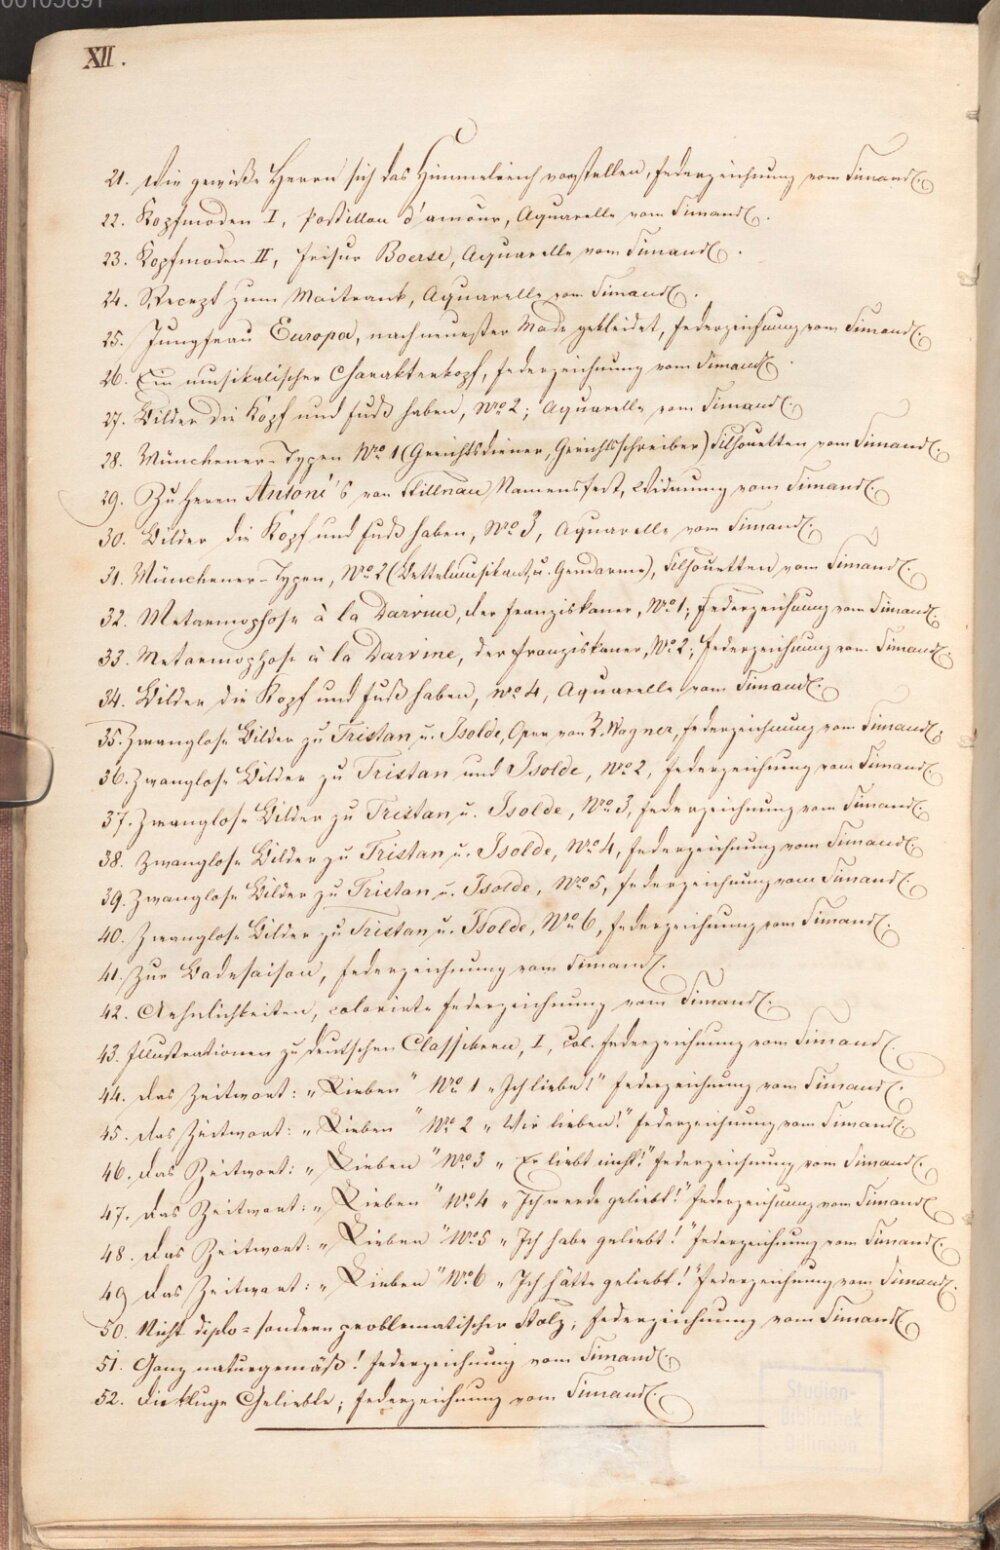 00105891
XII.
21. Wie gewiße Herrn sich das Himmelreich vorstellen, Federzeichnung vom Simandl.
22. Kopfmoden I, Postillon d'amour, Aquarelle vom Simandl.
23. Kopfmoden II, Frisur Boerse, Aquarelle vom Simandl.
24. Recept zum Maitrank, Aquarelle vom Simandl.
25. Jungfrau Europa, nach neuester Mode gekleidet, Federzeichnung vom Simandl.
26. Ein musikalischer Charakterkopf, Federzeichnung vom Simandl.
27. Bilder die Kopf und Fuß haben, Nro 2; Aquarelle vom Simandl.
28. Münchener-Typen Nro 1 (Gerichtsdiener, Gerichtsschreiber) Silhouetten vom Simandl.
29. Zu Herrn Antoni's von Stillnau Namensfest, Widmung vom Simandl.
30. Bilder die Kopf und Fuß haben, Nro 3, Aquarelle vom Simandl.
31. Münchener-Typen, Nro 2 (Bettelmusikant, u. Gendarme), Silhouetten vom Simandl.
32. Metaemophose à la Darvine, der Franziskaner, Nro 1; Federzeichnung vom Simandl.
33. Metaemophose à la Darvine, der Franziskaner, Nro 2; Federzeichnung vom Simandl.
34. Bilder die Kopf und Fuß haben, Nro 4, Aquarelle vom Simandl.
35. Zwanglose Bilder zu Tristan u. Isolde, Oper von R. Wagner, Federzeichnung vom Simandl.
36. Zwanglose Bilder zu Tristan und Isolde, Nro 2, Federzeichnung vom Simandl.
37. Zwanglose Bilder zu Tristan u. Isolde, Nro 3, Federzeichnung vom Simandl.
38. Zwanglose Bilder zu Tristan u. Isolde, Nro 4, Federzeichnung vom Simandl.
39. Zwanglose Bilder zu Tristan u. Isolde, Nro 5, Federzeichnung vom Simandl.
40. Zwanglose Bilder zu Tristan u. Isolde, Nro 6, Federzeichnung vom Simandl.
41. Zur Badesaison, Federzeichnung vom Simandl.
42. Aehnlichkeiten, colorirte Federzeichnung vom Simandl.
43. Illustrationen zu deutschen Classikern, I, col. Federzeichnung vom Simandl.
44. Das Zeitwort: „Lieben" Nro 1 „Ich liebe!" Federzeichnung vom Simandl.
45. Das Zeitwort: „Lieben" Nro 2 „Wir lieben!" Federzeichnung vom Simandl.
46. Das Zeitwort: „Lieben" Nro 3 „Er liebt nicht!" Federzeichnung vom Simandl.
47. Das Zeitwort: „Lieben" Nro 4 „Ich werde geliebt!" Federzeichnung vom Simandl.
48. Das Zeitwort: „Lieben" Nro 5 „Ich habe geliebt!" Federzeichnung vom Simandl.
49. Das Zeitwort: „Lieben" Nro 6 „Ich hätte geliebt!" Federzeichnung vom Simandl.
50. Nicht diplo= sondern problematischer Stolz; Federzeichnung vom Simandl.
51. Ganz naturgemäß! Federzeichnung vom Simandl.
52. Die kluge Geliebte; Federzeichnung vom Simandl.
Studien-
Bibliothek
Dillingen